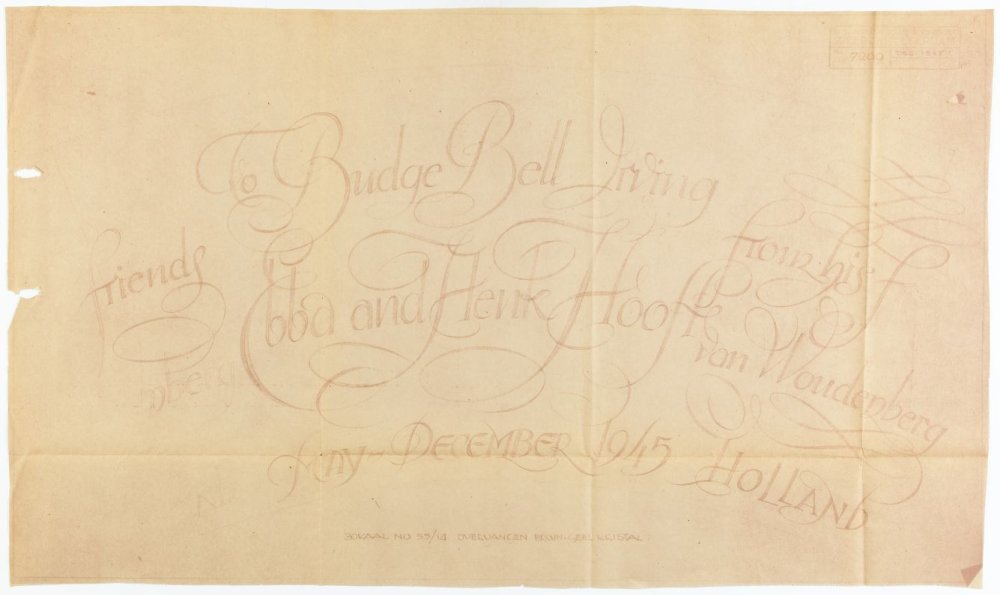 To Budge Bell Irving
from his f
friends
Ebba and Henk Hooft
van Woudenberg
nberg
May - DECEMBER 1945
HOLLAND
BOKAAL NO 55/14 OVERVANGEN KRISTAL
7200 DEC. 1945